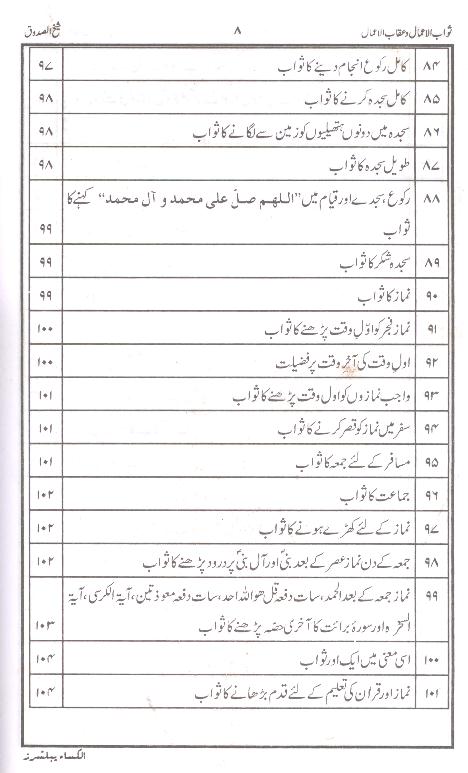 ثواب الاعمال و عقاب الاعمال ۸ شیخ الصدوق
۸۴ کامل رکوع انجام دینے کا ثواب ۹۷
۸۵ کامل سجدہ کرنے کا ثواب ۹۸
۸۶ سجدہ میں دونوں ہتھیلیوں کو زمین سے لگانے کا ثواب ۹۸
۸۷ طویل سجدہ کا ثواب ۹۸
۸۸ رکوع، سجدے اور قیام میں "اللهم صلّ علی محمد و آل محمد" کہنے کا
ثواب ۹۹
۸۹ سجدہ شکر کا ثواب ۹۹
۹۰ نماز کا ثواب ۹۹
۹۱ نماز فجر کو اوّلِ وقت پڑھنے کا ثواب ۱۰۰
۹۲ اولِ وقت کی آخرِ وقت پر فضیلت ۱۰۰
۹۳ واجب نمازوں کو اول وقت پڑھنے کا ثواب ۱۰۱
۹۴ سفر میں نماز کو قصر کرنے کا ثواب ۱۰۱
۹۵ مسافر کے لئے جمعہ کا ثواب ۱۰۱
۹۶ جماعت کا ثواب ۱۰۲
۹۷ نماز کے لئے کھڑے ہونے کا ثواب ۱۰۲
۹۸ جمعہ کے دن نماز عصر کے بعد نبیؐ اور آل نبیؐ پر درود پڑھنے کا ثواب ۱۰۲
۹۹ نماز جمعہ کے بعد الحمد، سات دفعہ قل هو الله احد، سات دفعہ معوذتین، آیۃ الکرسی، آیۃ
السخرہ اور سورۂ برائت کا آخری حصّہ پڑھنے کا ثواب ۱۰۳
۱۰۰ اسی معنی میں ایک اور ثواب ۱۰۴
۱۰۱ نماز اور قرآن کی تعلیم کے لئے قدم بڑھانے کا ثواب ۱۰۴
الکساء پبلشرز